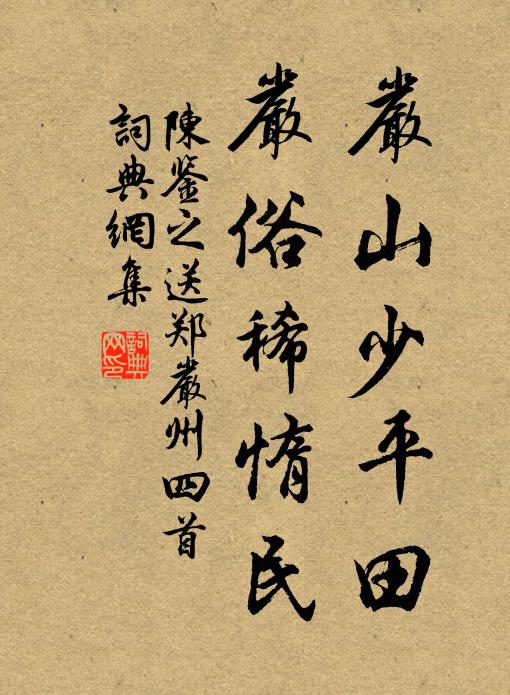 嚴山少平田
嚴俗稀惰民
陳鉴之送郑嚴州四首
詞典網集
詞典网印